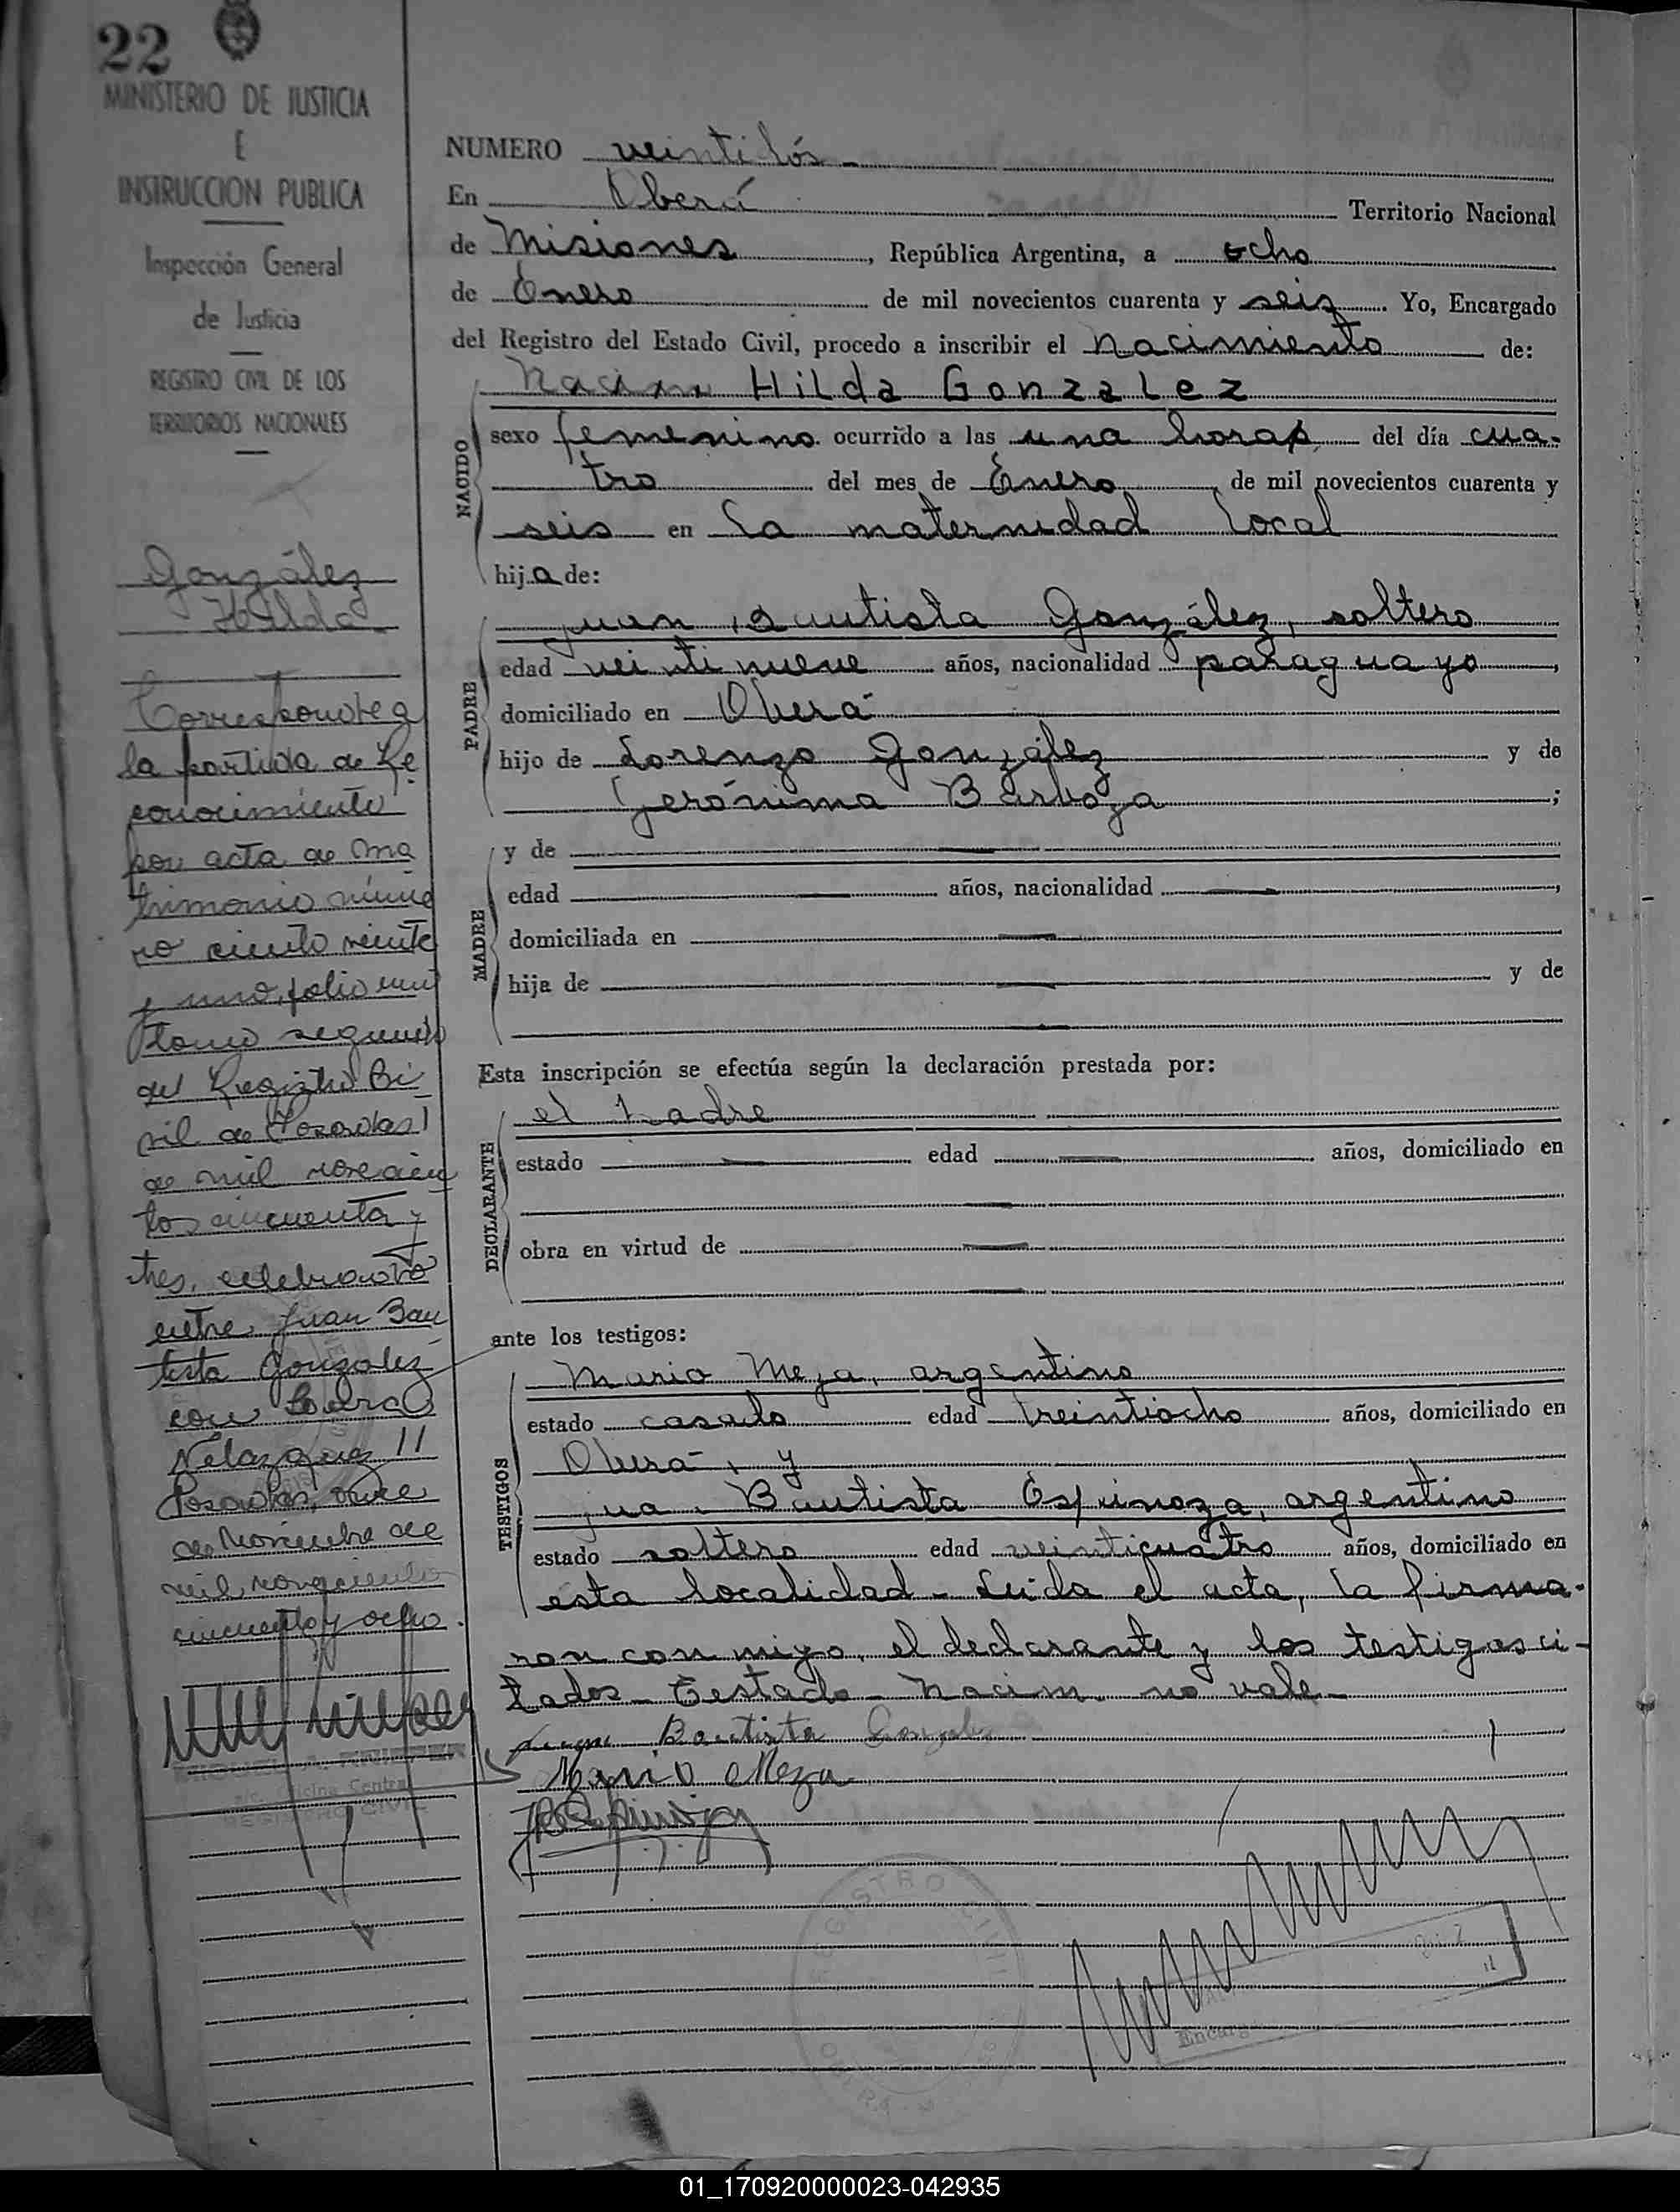 22
MINISTERIO DE JUSTICIA
E
INSTRUCCION PUBLICA
Inspección General
de Justicia
REGISTRO CIVIL DE LOS
TERRITORIOS NACIONALES
González
Hilda
Corresponde a
la partida de Re
conocimiento
por acta de ma
trimonio núme
ro ciento veinte
y uno, folio
tomo segundo
del Registro Ci
vil de Posadas
de mil novecien
tos cincuenta y
tres, celebrado
entre Juan Bau
tista Gonzalez
con
Velazquez
Posadas, once
de Noviembre de
mil novecientos
cincuenta y ocho.
NUMERO veintidós
En Oberá Territorio Nacional
de Misiones, República Argentina, a ocho
de Enero de mil novecientos cuarenta y seis. Yo, Encargado
del Registro del Estado Civil, procedo a inscribir el nacimiento de:
Nacim Hilda Gonzalez
NACIDO
sexo femenino ocurrido a las una horas del día cua-
tro del mes de Enero, de mil novecientos cuarenta y
seis en la maternidad local
hija de:
PADRE
Juan Bautista González, soltero
edad veintinueve años, nacionalidad paraguayo,
domiciliado en Oberá
hijo de Lorenzo González y de
Gerónima Barboza;
MADRE
y de
edad años, nacionalidad ,
domiciliada en
hija de y de
Esta inscripción se efectúa según la declaración prestada por:
DECLARANTE
el padre
estado edad años, domiciliado en
obra en virtud de
ante los testigos:
TESTIGOS
Mario Meza, argentino
estado casado edad treintiocho años, domiciliado en
Oberá, y
Bautista Espinoza, argentino
estado soltero edad veinticuatro años, domiciliado en
esta localidad - Leida el acta, la firma-
ron conmigo, el declarante y los testigos ci-
tados - Testado - Nacim no vale -
Juan Bautista Gonzalez
Mario Meza
REGISTRO CIVIL
Encarg
01_170920000023-042935